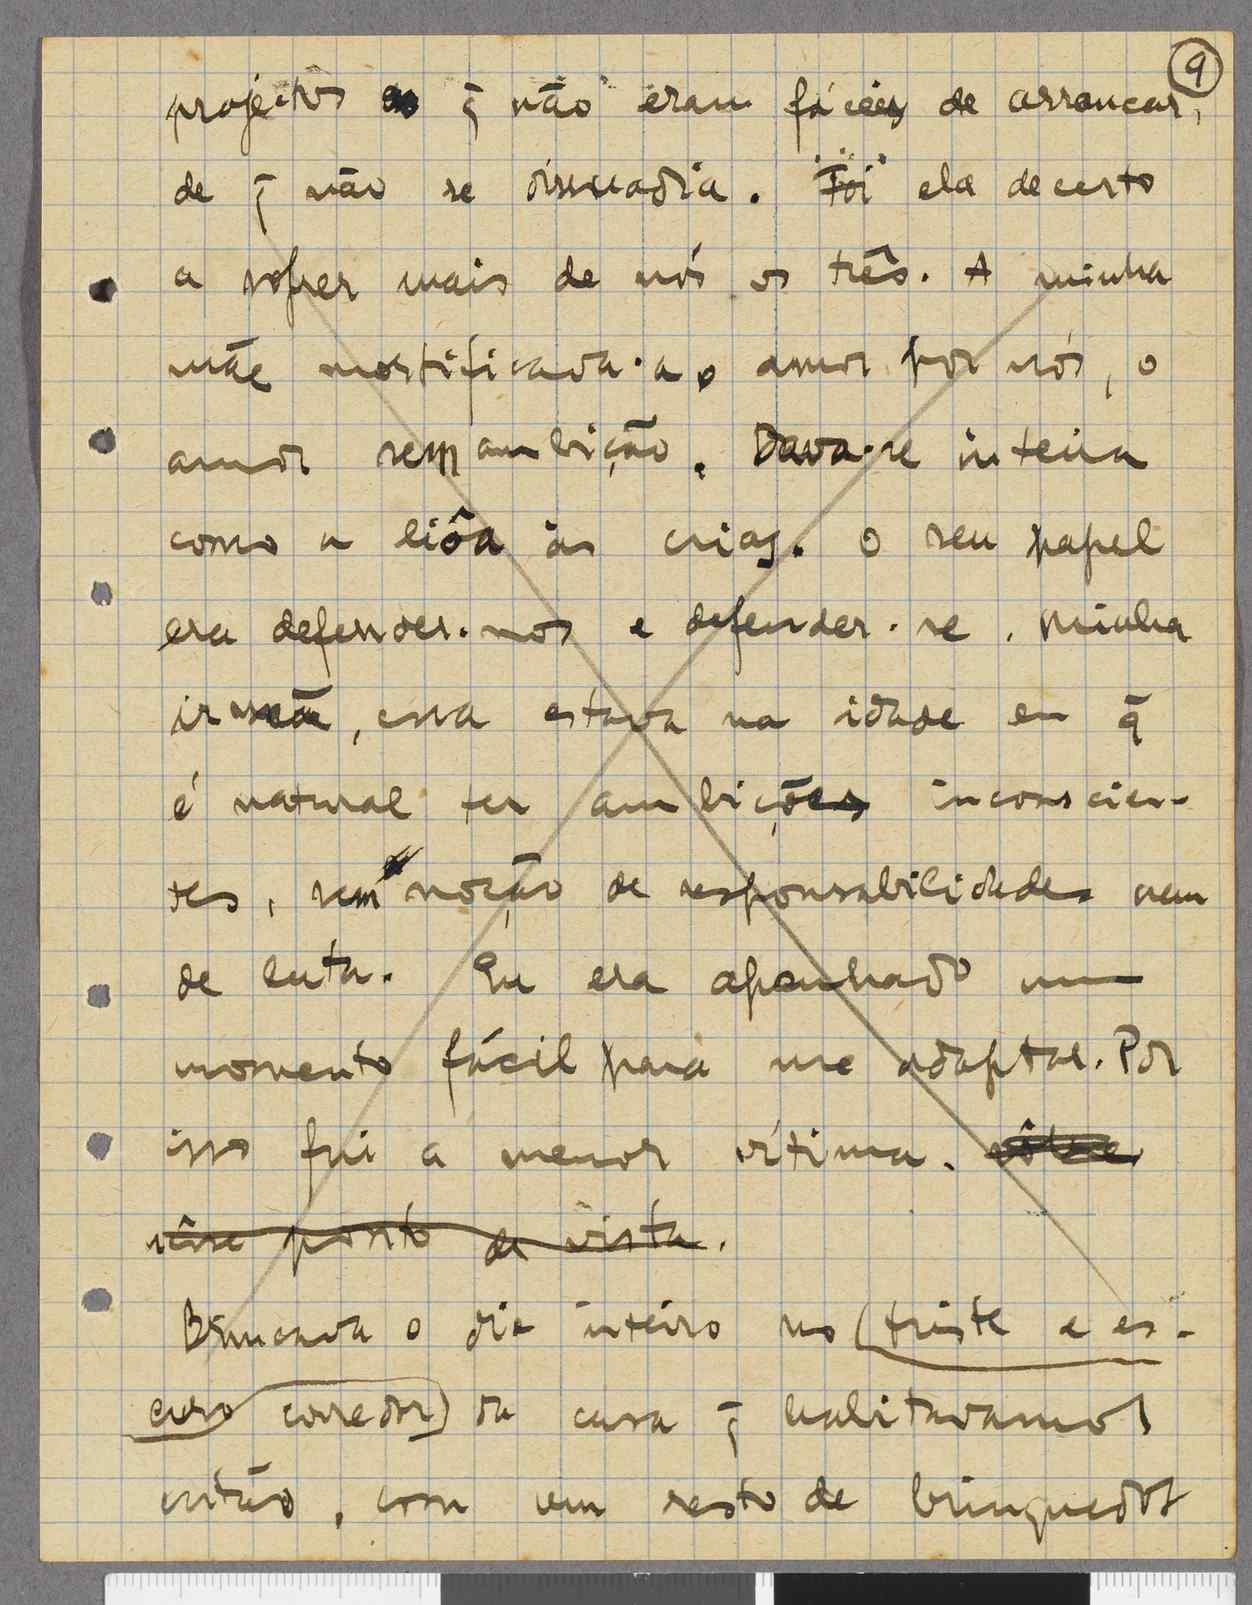 9
projectos q̄ não eram fáceis de arrancar,
de q̄ não se dissuadia. Foi ela decerto
a sofrer mais de nós os três. A minha
mãe mortificava-a o amor por nós, o
amor sem ambição. Dava-se inteira
como a liôa às crias. O seu papel
era defender-nos e defender-se. Minha
irmã, essa estava na idade em q̄
é natural ter ambições inconscien-
tes, sem noção de responsabilidades nem
de luta. Eu era apanhado num
momento fácil para me adaptar. Por
isso fui a menor vítima.
nêsse ponto de vista.
Brincava o dia inteiro no (triste e es-
curo corredor) da casa q̄ habitavamos
então, com um resto de brinquedos